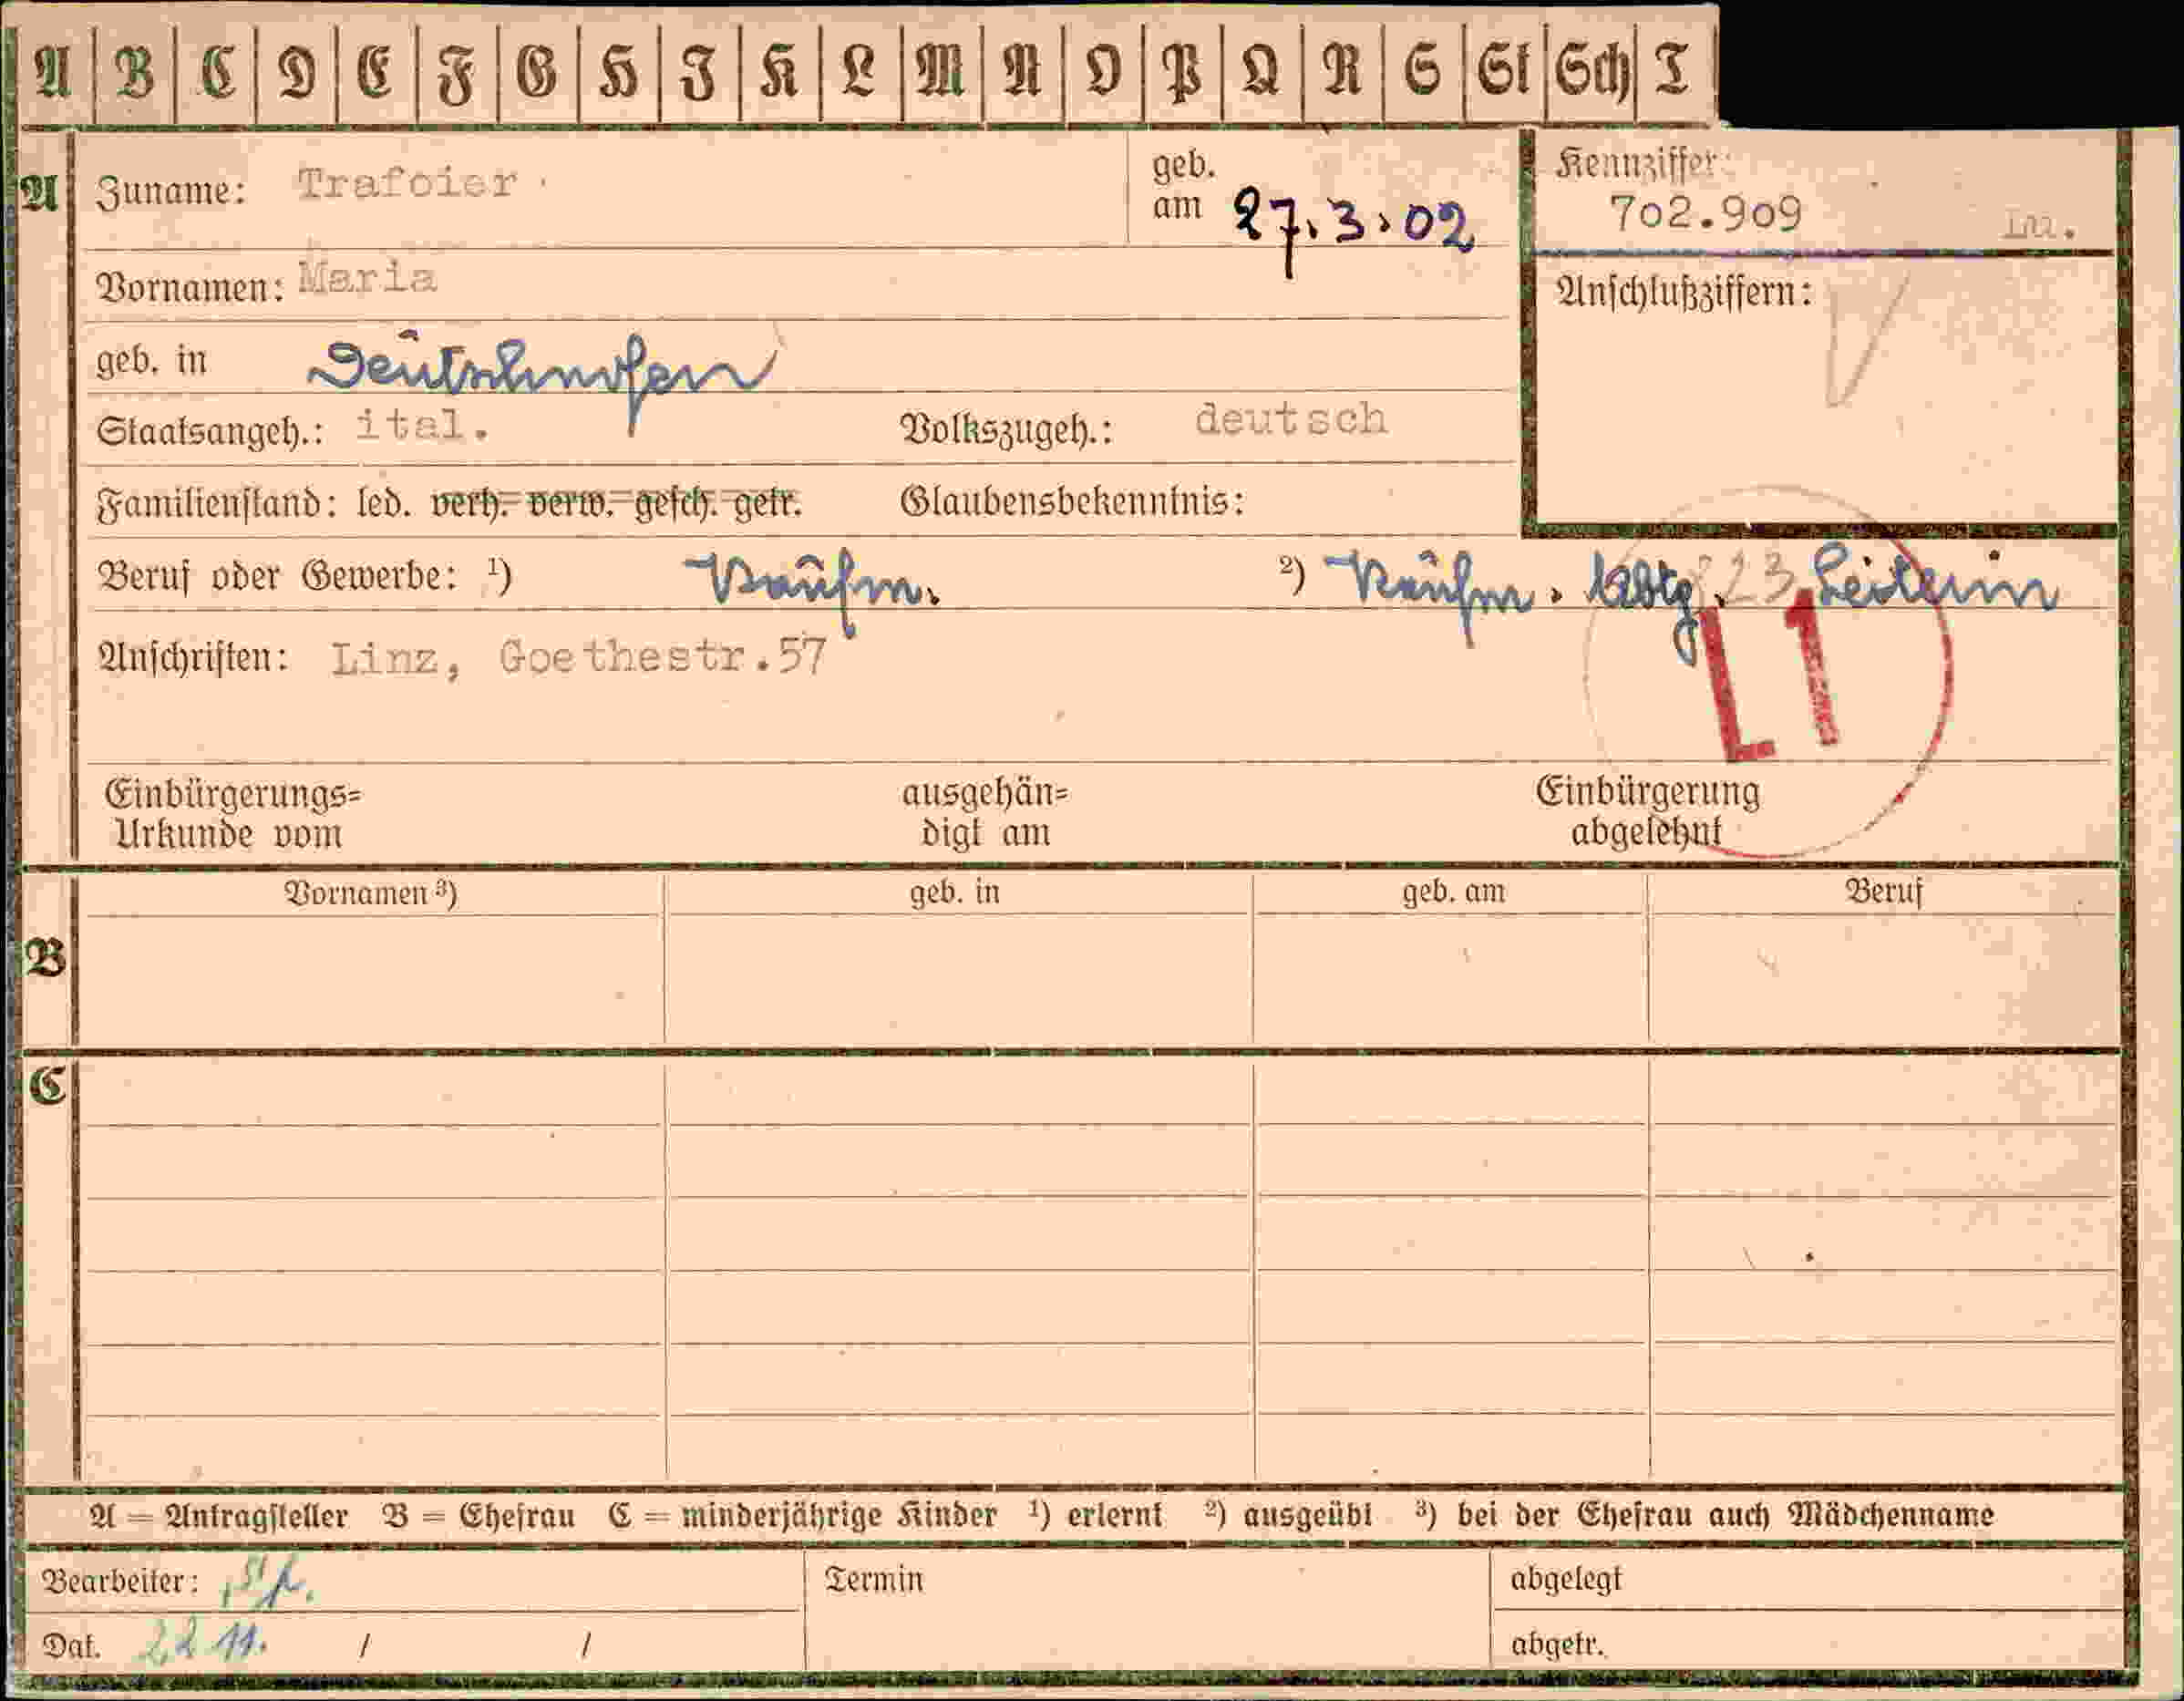 A B C D E F G H I K L M N O P Q R S St Sch T
A Zuname: Trafoier geb. am 27.3.02
Kennziffer: 702.909
Vornamen: Maria
Anschlußziffern:
geb. in Deutschnofen
Staatsangeh.: ital. Volkszugeh.: deutsch
Familienstand: led. verh. verw. gesch. getr. Glaubensbekenntnis:
Beruf oder Gewerbe: ¹) Kaufm. ²) Kaufm. Abtg. 23 Leiterin
Anschriften: Linz, Goethestr.57
L1
Einbürgerungs= ausgehän= Einbürgerung
Urkunde vom digt am abgelehnt
Vornamen ³) geb. in geb. am Beruf
B
C
A = Antragsteller B = Ehefrau C = minderjährige Kinder ¹) erlernt ²) ausgeübt ³) bei der Ehefrau auch Mädchenname
Bearbeiter: Termin abgelegt
Dat. 22 11. / / abgetr.